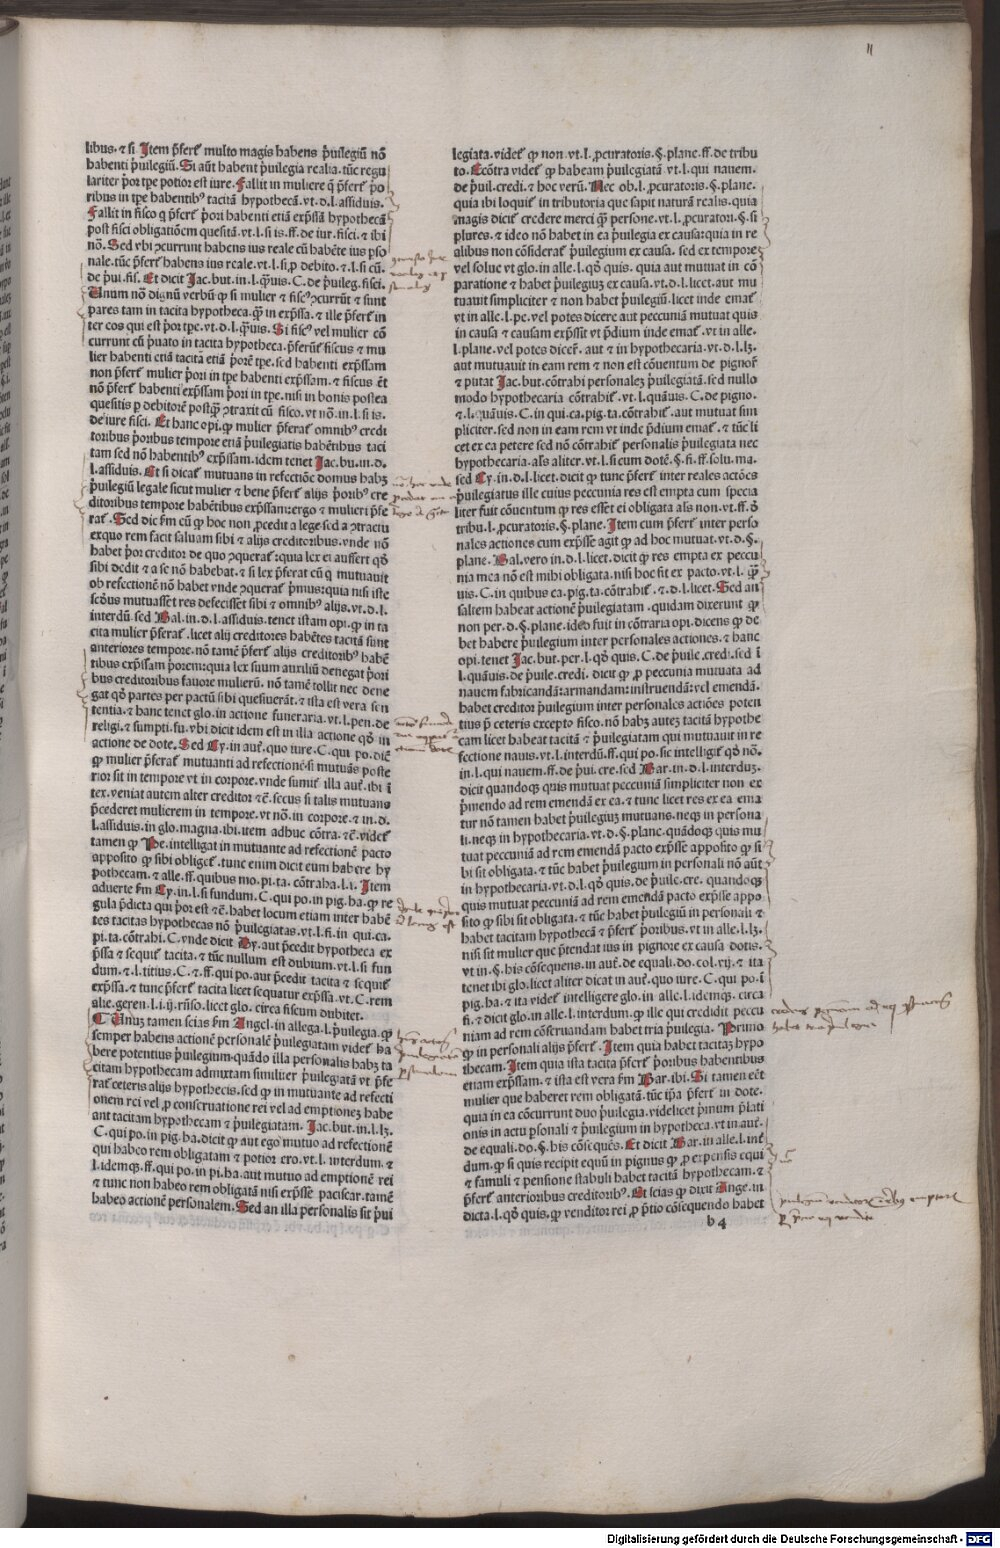 11
libus. ⁊ si Item p̄fert̉ multo magis habens p̄uilegiū nō
habenti p̄uilegiū. Si aūt habent p̄uilegia realia. tūc regu
lariter p̄or tꝑe potior est iure. Fallit in muliere q̄ p̄fert̉ p̄o
ribus in tꝑe habentibꝰ tacitā hypothecā. vt. d. l. assiduis.
Fallit in fisco q̄ p̄fert̉ p̄ori habenti etiā exp̄ssā hypothecā
post fisci obligatiōem quesitā. vt. l. si is. ff. de iur. fisci. ⁊ ibi
nō. Sed vbi ꝯcurrunt habens ius reale cū habēte ius ꝑso
nale. tūc p̄fert̉ habens ius reale. vt. l. si. ꝓ debito. ⁊. l. si cū.
de p̄ui. fis. Et dicit Jac. but. in. l. q̄uis. C. de p̄uileg. fisci.
Unum nō dignū verbū ꝙ si mulier ⁊ fiscꝰ ꝯcurrūt ⁊ sunt
pares tam in tacita hypotheca. ꝙ̄ in exp̄ssa. ⁊ ille p̄fert̉ in
ter eos qui est p̄or tꝑe. vt. d. l. q̄uis. Si fiscꝰ vel mulier cō
currunt cū p̄uato in tacita hypotheca. p̄ferūt̉ fiscus ⁊ mu
lier habenti etiā tacitā etiā p̄orē tꝑe. sed habenti exp̄ssam
non p̄fert̉ mulier p̄ori in tꝑe habenti exp̄ssam. ⁊ fiscus ēt
nō p̄fert̉ habenti exp̄ssam p̄ori in tꝑe. nisi in bonis postea
quesitis ꝑ debitorē postꝙ̄ ꝯtraxit cū fisco. vt nō. in. l. si is.
de iure fisci. Et hanc opi. ꝙ mulier p̄ferat̉ omnibꝰ credi
toribus p̄oribus tempore etiā p̄uilegiatis habētibus taci
tam sed nō habentibꝰ exp̄ssam. idem tenet Jac. bu. in. d.
l. assiduis. Et si dicat̉ mutuans in refectiōe domus habꝫ
p̄uilegiū legale sicut mulier ⁊ bene p̄fert̉ alijs p̄oribꝰ cre
ditoribus tempore habētibus exp̄ssam: ergo ⁊ mulieri p̄fe
rat̉. Sed dic ẜm cū ꝙ hoc non ꝓcedit a lege sed a ꝯtractu
exquo rem facit saluam sibi ⁊ alijs creditoribus. vnde nō
habet p̄or creditor de quo ꝯquerat̉: quia lex ei auffert qđ
sibi dedit ⁊ a se nō habebat. ⁊ si lex p̄ferat eū q̄ mutuauit
ob refectionē nō habet vnde ꝯquerat̉ p̄mus: quia nisi iste
scđus mutuasset res defecisset sibi ⁊ omnibꝰ alijs. vt. d. l.
interdū. sed Bal. in. d. l. assiduis. tenet istam opi. ꝙ in ta
cita mulier p̄ferat̉. licet alij creditores habētes tacitā sunt
anteriores tempore. nō tamē p̄fert̉ alijs creditoribꝰ habē
tibus exp̄ssam p̄orem: quia lex suum auxiliū denegat p̄ori
bus creditoribus fauore mulierū. nō tamē tollit nec dene
gat qđ partes per pactū sibi quesiuerāt. ⁊ ista est vera sen
tentia. ⁊ hanc tenet glo. in actione funeraria. vt. l. pen. de
religi. ⁊ sumpti. fu. vbi dicit idem est in illa actione qđ in
actione de dote. Sed Cy. in aut̉. quo iure. C. qui po. dic̄
ꝙ mulier p̄ferat̉ mutuanti ad refectionē. si mutuās poste
rior sit in tempore vt in corpore. vnde sumit̉ illa aut̉. ibi ī
tex. veniat autem alter creditor ⁊c̄. secus si talis mutuans
p̄cederet mulierem in tempore. vt nō. in corpore. ⁊ in. d.
l. assiduis. in glo. magna. ibi. item adhuc cōtra. ⁊c̄. videt̉
tamen ꝙ Pe. intelligat in mutuante ad refectionē pacto
apposito ꝙ sibi obliget̉. tunc enim dicit eum habere hy
pothecam. ⁊ alle. ff. quibus mo. pi. ta. cōtraha. l. i. Item
aduerte ẜm Cy. in. l. si fundum. C. qui po. in pig. ha. ꝙ re
gula p̄dicta qui p̄or est ⁊c̄. habet locum etiam inter habē
tes tacitas hypothecas nō p̄uilegiatas. vt. l. fi. in qui. ca.
pi. ta. cōtrahi. C. vnde dicit Dy. aut p̄cedit hypotheca ex
p̄ssa ⁊ sequit̉ tacita. ⁊ tūc nullum est dubium. vt. l. si fun
dum. ⁊. l. titius. C. ⁊. ff. qui po. aut p̄cedit tacita ⁊ sequit̉
exp̄ssa. ⁊ tunc p̄fert̉ tacita licet sequatur exp̄ssa. vt. C. rem
alie. geren. l. i. ij. rn̄so. licet glo. circa fiscum dubitet.
¶ Unuꝫ tamen scias ẜm Angel. in allega. l. p̄uilegia. ꝙ
semper habens actionē personalē p̄uilegiatam videt̉ ha
bere potentius p̄uilegium. quādo illa personalis habꝫ ta
citam hypothecam admixtam similiter p̄uilegiatā vt p̄fe
rat̉ ceteris alijs hypothecis. sed ꝙ in mutuante ad refecti
onem rei vel ꝓ conseruatione rei vel ad emptioneꝫ habe
ant tacitam hypothecam ⁊ p̄uilegiatam. Jac. but. in. l. lꝫ.
C. qui po. in pig. ha. dicit ꝙ aut ego mutuo ad refectionē
qui habeo rem obligatam ⁊ potior ero. vt. l. interdum. ⁊
l. idemqꝫ. ff. qui po. in pi. ha. aut mutuo ad emptionē rei
⁊ tunc non habeo rem obligatā nisi exp̄sse paciscar. tamē
habeo actionē personalem. Sed an illa personalis sit p̄ui
legiata. videt̉ ꝙ non. vt. l. ꝓcuratoris. §. plane. ff. de tribu
to. Ecōtra videt̉ ꝙ habeam p̄uilegiatā vt. l. qui nauem.
de p̄uil. credi. ⁊ hoc verū. Nec ob. l. ꝓcuratoris. §. plane.
quia ibi loquit̉ in tributoria que sapit naturā realis. quia
magis dicit̉ credere merci ꝙ̄ persone. vt. l. ꝓcuratori. §. si
plures. ⁊ ideo nō habet in ea p̄uilegia ex causa: quia in re
alibus non cōsiderat̉ p̄uilegium ex causa. sed ex tempore
vel solue vt glo. in alle. l. qđ quis. quia aut mutuat in cō
paratione ⁊ habet p̄uilegiuꝫ ex causa. vt. d. l. licet. aut mu
tuauit simpliciter ⁊ non habet p̄uilegiū. licet inde emat̉
vt in alle. l. pe. vel potes dicere aut peccuniā mutuat quis
in causa ⁊ causam exp̄ssit vt p̄dium inde emat̉. vt in alle.
l. plane. vel potes dicer̉. aut ⁊ in hypothecaria. vt. d. l. lꝫ.
aut mutuauit in eam rem ⁊ non est cōuentum de pignor̉
⁊ putat Jac. but. cōtrahi personaleꝫ p̄uilegiatā. sed nullo
modo hypothecaria cōtrahit̉. vt. l. quāuis. C. de pigno.
⁊. l. quāuis. C. in qui. ca. pig. ta. cōtrahit̉. aut mutuat sim
pliciter. sed non in eam rem vt inde p̄dium emat̉. ⁊ tūc li
cet ex ea petere sed nō cōtrahit̉ personalis p̄uilegiata nec
hypothecaria. al̓s aliter. vt. l. si cum dotē. §. fi. ff. solu. ma.
sed Cy. in. d. l. licet. dicit ꝙ tunc p̄fert̉ inter reales actōes
p̄uilegiatus ille cuius peccunia res est empta cum specia
liter fuit cōuentum ꝙ res esset ei obligata al̓s non. vt. ff. đ
tribu. l. ꝓcuratoris. §. plane. Item cum p̄fert̉ inter perso
nales actiones cum exp̄sse agit̉ ꝙ ad hoc mutuat. vt. d. §.
plane. Bal. vero in. d. l. licet. dicit ꝙ res empta ex peccu
nia mea nō est mihi obligata. nisi hoc fit ex pacto. vt. l. ꝙ̄
uis. C. in quibus ca. pig. ta. cōtrahit̉. ⁊. d. l. licet. Sed an
saltem habeat actionē p̄uilegiatam. quidam dixerunt ꝙ
non per. d. §. plane. ideo fuit in cōtraria opi. dicens ꝙ de
bet habere p̄uilegium inter personales actiones. ⁊ hanc
opi. tenet Jac. but. per. l. qđ quis. C. de p̄uile. credi. sed ī
l. quāuis. de p̄uile. credi. dicit ꝙ ꝓ peccunia mutuata ad
nauem fabricandā: armandam: instruendā: vel emendā.
habet creditor p̄uilegium inter personales actiōes poten
tius p̄ ceteris excepto fisco. nō habꝫ auteꝫ tacitā hypothe
cam licet habeat tacitā ⁊ p̄uilegiatam qui mutuauit in re
fectione nauis. vt. l. interdū. ff. qui po. sic intelligit̉ qđ nō.
in. l. qui nauem. ff. de p̄ui. cre. sed Bar. in. d. l. interduꝫ.
dicit quandoqꝫ quis mutuat peccuniā simpliciter non ex
p̄mendo ad rem emendā ex ea. ⁊ tunc licet res ex ea ema
tur nō tamen habet p̄uilegiuꝫ mutuans. neqꝫ in persona
li. neqꝫ in hypothecaria. vt. d. §. plane. quādoqꝫ quis mu
tuat peccuniā ad rem emendā pacto exp̄sse apposito ꝙ si
bi sit obligata. ⁊ tūc habet p̄uilegium in personali nō aūt
in hypothecaria. vt. d. l. qđ quis. de p̄uile. cre. quandoqꝫ
quis mutuat peccuniā ad rem emendā pacto exp̄sse appo
sito ꝙ sibi sit obligata. ⁊ tūc habet p̄uilegiū in personali ⁊
habet tacitam hypothecā ⁊ p̄fert̉ p̄oribus. vt in alle. l. lꝫ.
nisi sit mulier que p̄tendat ius in pignore ex causa dotis.
vt in. §. his cōsequens. in aut̉. de equali. do. col. vij. ⁊ ita
tenet ibi glo. licet aliter dicat in aut̉. quo iure. C. qui po. ī
pig. ha. ⁊ ita videt̉ intelligere glo. in alle. l. idemqꝫ. circa
fi. ⁊ dicit glo. in alle. l. interdum. ꝙ ille qui credidit peccu
niam ad rem cōseruandam habet tria p̄uilegia. Primo
ꝙ in personali alijs p̄fert̉. Item quia habet tacitaꝫ hypo
thecam. Item quia ista tacita p̄fert̉ p̄oribus habentibus
etiam exp̄ssam. ⁊ ista est vera ẜm Bar. ibi. Si tamen eēt
mulier que haberet rem obligatā. tūc ip̄a p̄fert̉ in dote.
quia in ea cōcurrunt duo p̄uilegia. videlicet p̄mum p̄lati
onis in actu ꝑsonali ⁊ p̄uilegium in hypotheca. vt in aut̉.
de equali. do. §. his cōseq̄ns. Et dicit Bar. in alle. l. int̉
dum. ꝙ si quis recipit equū in pignus ꝙ ꝓ expensis equi
⁊ famuli ⁊ pensione stabuli habet tacitā hypothecam. ⁊
p̄fert̉ anterioribus creditoribꝰ. Et scias ꝙ dixit Ange. in
dicta. l. qđ quis. ꝙ venditor rei ꝓ p̄tio cōsequendo habet
b 4
Digitalisierung gefördert durch die Deutsche Forschungsgemeinschaft - DFG